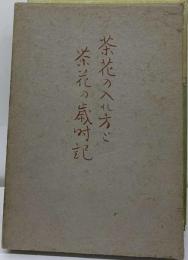 茶花の入れ方と
茶花の歳時記